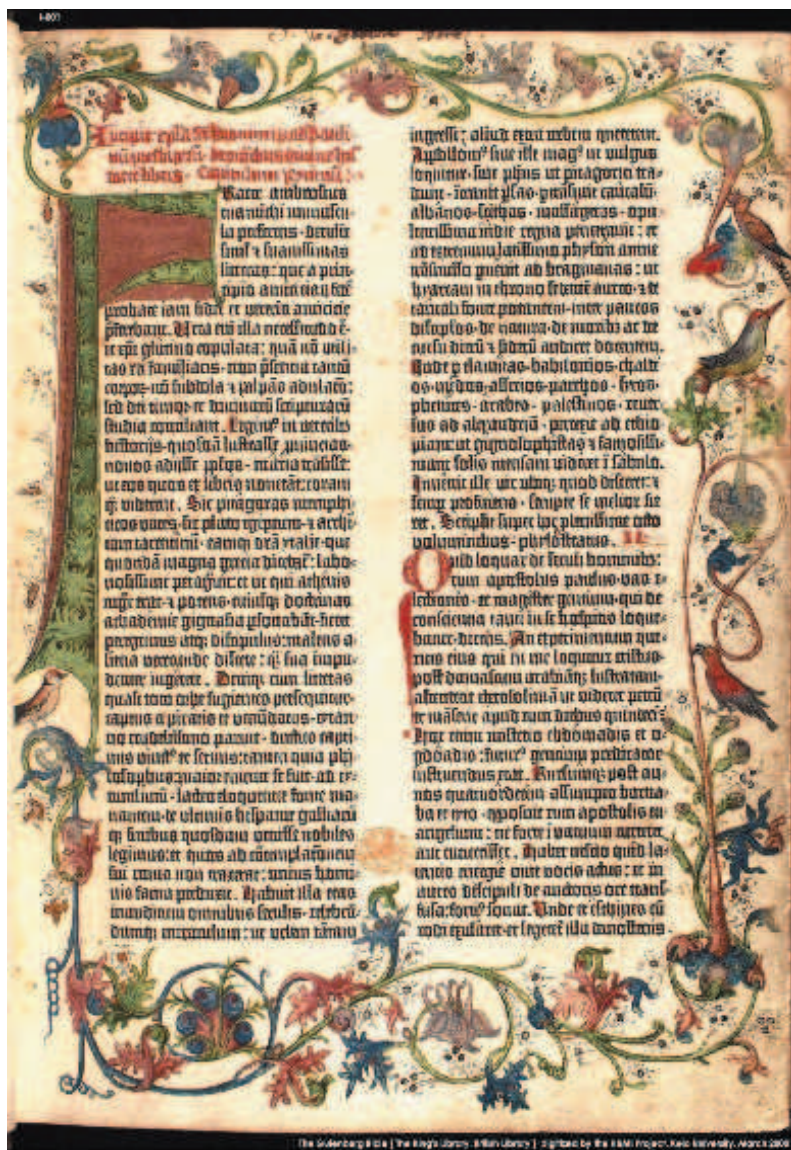 I-001
Frater ambrosius
tua michi munuscu-
la perferens · detulit
sil' ⁊ suauissimas
litteras: que a prin-
cipio amiciciaꝝ fidē
probate iam fidei et veteris amicicie
Vera eni illa necessitudo ē ·
et xp̄i glutino copulata: quā nō vtili-
tas rei familiaris · non p̄sentia tantū
corporꝝ · nō subdola ⁊ palpās adulacō:
sed dei timor · et diuinarū scripturarū
studia conciliant. Legimꝰ in veteribꝫ
historijs · quosdā lustrasse ꝓuincias ·
nouos adijsse ppl̄os · maria trāsisse:
ut eos quos ex libris nouerāt: coram
qꝫ viderent. Sic pitagoras memphi-
ticos vates · sic plato egiptum · ⁊ archi-
tam tarentinū ·
quondā magna grecia dicebat̄: labo-
riosissime peragrauit: et ut qui athenis
mgr̄ erat · ⁊ potens · cuiusqꝫ doctrinas
achademie gignasia ꝑsonabāt · fieret
peregrinus atqꝫ discipulus: malens a-
liena verecunde discere: qꝫ sua īmpu-
denter ingerere. Deniqꝫ cum litteras
quasi toto orbe fugientes persequitur ·
captus a piratis et venūdatus ·
no crudelissimo paruit · ductus capti-
uus vinctꝰ et seruus: tamen quia phi-
losophus: maior emente se fuit · ad ty-
tumliuiū · lacteo eloquentie fonte ma-
nantem · de vltimis hispanie galliarū
qꝫ finibus quosdam venisse nobiles
legimus: et quos ad
sui roma non traxerat: vnius homi-
nis fama perduxit. Habuit illa etas
inauditum omnibus seculis · celebrā-
dumqꝫ miraculum: ut vrbem tantam
ingressi: aliud extra vrbem quererent.
Apollonꝰ siue ille magꝰ ut vulgus
loquitur · siue ph̄us ut pitagorici tra-
dunt · ītrauit ꝑsas · ptrāsiuit caucasū ·
albanos · scithas · massagetas · opu-
lentissima indie regna penetrauit: et
ad extremum latissimo physon amne
trāsmisso peruenit ad bragmanas: ut
hyarcam in throno sedētē aureo · ⁊ de
tantali fonte potantem · inter paucos
discipl'os · de natura · de moribꝫ ac de
cursu dierū ⁊ siderū audiret docentem.
Inde p elamitas · babilonios · chalde-
os · medos · assirios · parthos · siros ·
phenices · arabes · palestinos · reuer-
sus ad alexandriā · perrexit ad ethio-
piam: ut gignosophistas ⁊ famosissi-
mam solis mensam videret ī sabulo.
Inuenit ille vir vbiqꝫ quod disceret: ⁊
semꝑ proficiens · semper se melior fie-
ret. Scripsit super hoc plenissime octo
voluminibus · phylostratus. II
Quid loquar de seculi hominibꝫ:
cum apostolus paulus · vas e-
lectionis · et magister gentium · qui de
conscientia tanti in se hospitis loque-
batur · dicens. An experimentum que-
ritis eius qui in me loquitur cristus ·
post damascum arabiāqꝫ lustratam ·
ascenderit iherosolimā ut videret petrū
et māserit apud eum diebus quindeci̅ ·
Hoc enim misterio ebdomadis et o-
gdoadis: futurꝰ gentium predicator
instruendus erat. Rursumqꝫ post an-
nos quatuordecim assumpto barna-
ba et tyto · exposuit cum apostolis eu-
angelium: ne forte ī vacuum curreret
aut cucurrisset. Habet nescio quid la-
tentis energie viue vocis actus: et in
aures discipuli de auctoris ore trans-
fusa: fortiꝰ sonat. Vnde et eschines cū
rodi exularet · et legeret̄ illa demostenis
The Gutenberg Bible | The King's Library, British Library | digitized by the HUMI Project, Keio University, March 2000